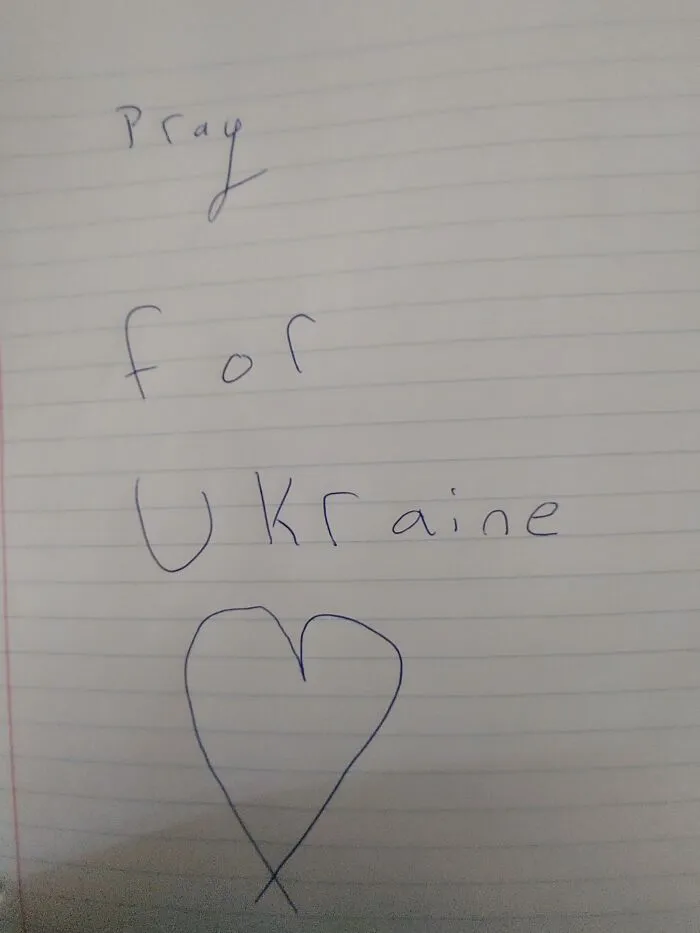 Pray
for
Ukraine